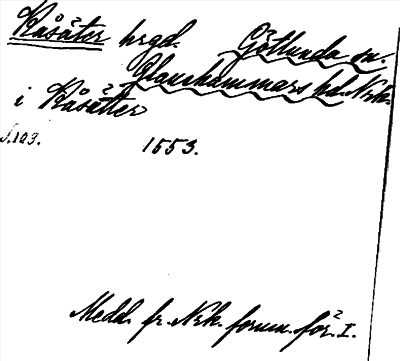 Råsäter hrgd. Götlunda sn.
Glanshammars hd. Nrk.
i Råsätter
J. 123. 1553.
Medd. fr. Nrk. fornm. för. I.